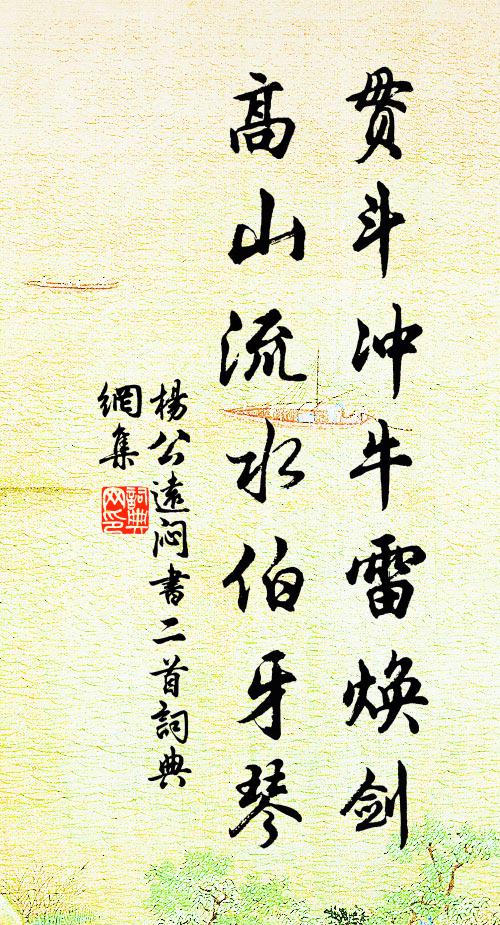 贯斗冲牛雷焕剑
高山流水伯牙琴
楊公遠闷書二首詞典
網集
詞典网印